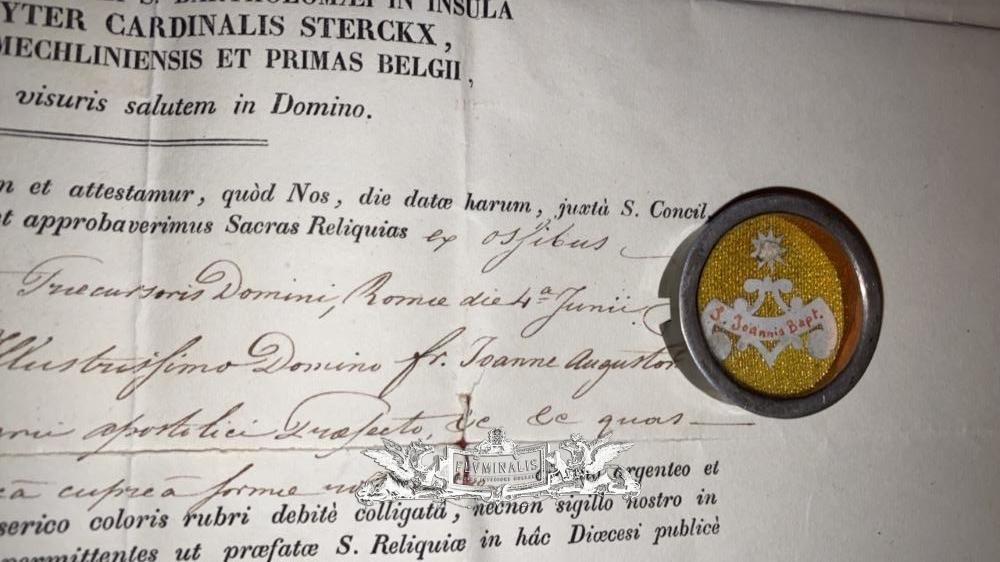 S. BARTHOLOMÆI IN INSULA
YTER CARDINALIS STERCKX,
MECHLINIENSIS ET PRIMAS BELGII,
visuris salutem in Domino.
et attestamur, quòd Nos, die datæ harum, juxtà S. Concil,
et approbaverimus Sacras Reliquias ex ossibus
Præcursoris Domini, Romæ die 4ª Junii
Illustrissimo Domino fr. Joanne Augustin
apostolici Præfecto, &c &c quas
cupreâ formæ
argenteo et
serico coloris rubri debitè colligatâ, necnon sigillo nostro in
permittentes ut præfatæ S. Reliquiæ in hâc Diœcesi publicè
S. Joannis Bapt.
FLVMINALIS